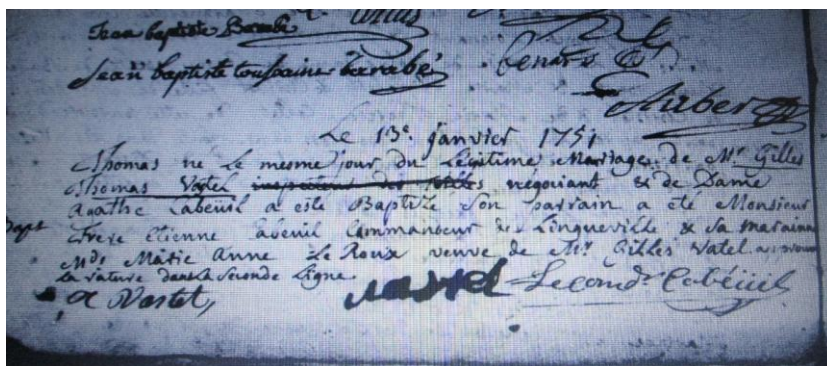 Jean baptiste Barabé
Jean baptiste toussaine barabé
Benard
Auber
Le 13e. janvier 1751
Thomas né Le mesme jour du Légitime Mariage de Mr Gilles
Thomas Vatel inspecteur des toilles négociant & de Dame
Agathe Cabeüil a esté Baptizé Son parrain a été Monsieur
Bapt
frere Etienne Cabeuil Commandeur de Linqueville & sa maraine
Mde Marie Anne Le Roux veuve de Mr Gilles Vatel approuvé
La rature dans la Seconde Ligne
a Vastel,
Vastel
Le Comdr Cabéüil